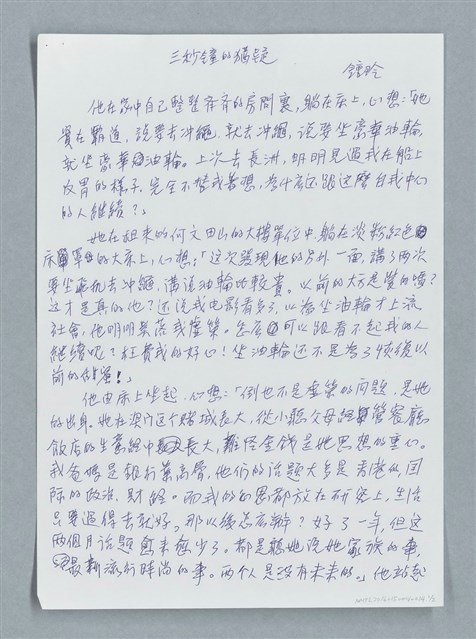 三秒鐘的猶疑
鍾玲
他在家中自己整整齊齊的房間裏，躺在床上，心想：「她
實在霸道，說要去冲繩，就去冲繩，說要坐豪華油輪，
就坐豪華油輪。上次去長洲，明明見過我在船上
反胃的樣子，完全不替我着想，為什麼还跟這麼自我中心
的人継続？」
她在租來的何文田山的大樓單位中，躺在淡粉紅色
床單的大床上，心想：「這次發現他的另外一面，講了兩次
要坐飛机去冲繩，講说油輪比較貴。以前的大方是裝的嗎？
这才是真的他？还说我电影看多了，以為坐油輪才上流
社會，他明明是說我虛榮。怎麼可以跟看不起我的人
継續呢？枉費我的好心！坐油輪还不是為了恢復以
前的甜蜜！」
他由床上坐起，心想：「倒也不是虛榮的问題，是她
的出身。她在澳门这个賭城長大，從小聽父母經營餐廳
飯店的生意經中長大，難怪金钱是她思想的重心。
我爸媽是銀行業高層，他们的话題大多是香港的、国
际的政治、財経。而我的心思都放在研究上，生活
只要過得去就好。那以後怎么辦？好了一年，但这
两個月话題愈來愈少了，都是聽她说她家族的事，
最新流行时尚的事。两个人是没有未來的。」他站起